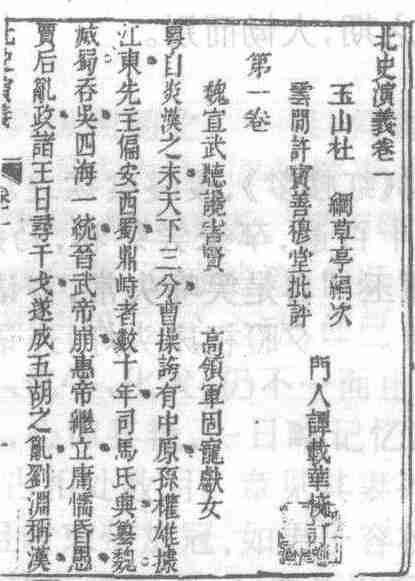 北史演義卷一
玉山杜　綱草亭編次
雲間許寶善穆堂批評
門人譚載華校訂
第一卷
魏宣武聽讒害賢　高領軍固寵獻女
粵自炎漢之末天下三分曹操誇有中原孫權雄據
江東先主偏安西蜀鼎峙者數十年司馬氏興纂魏
滅蜀吞吳四海一統晉武帝崩惠帝繼立庸懦昏愚
賈后亂政諸王日尋干戈遂成五胡之亂劉淵稱漢
北史演義